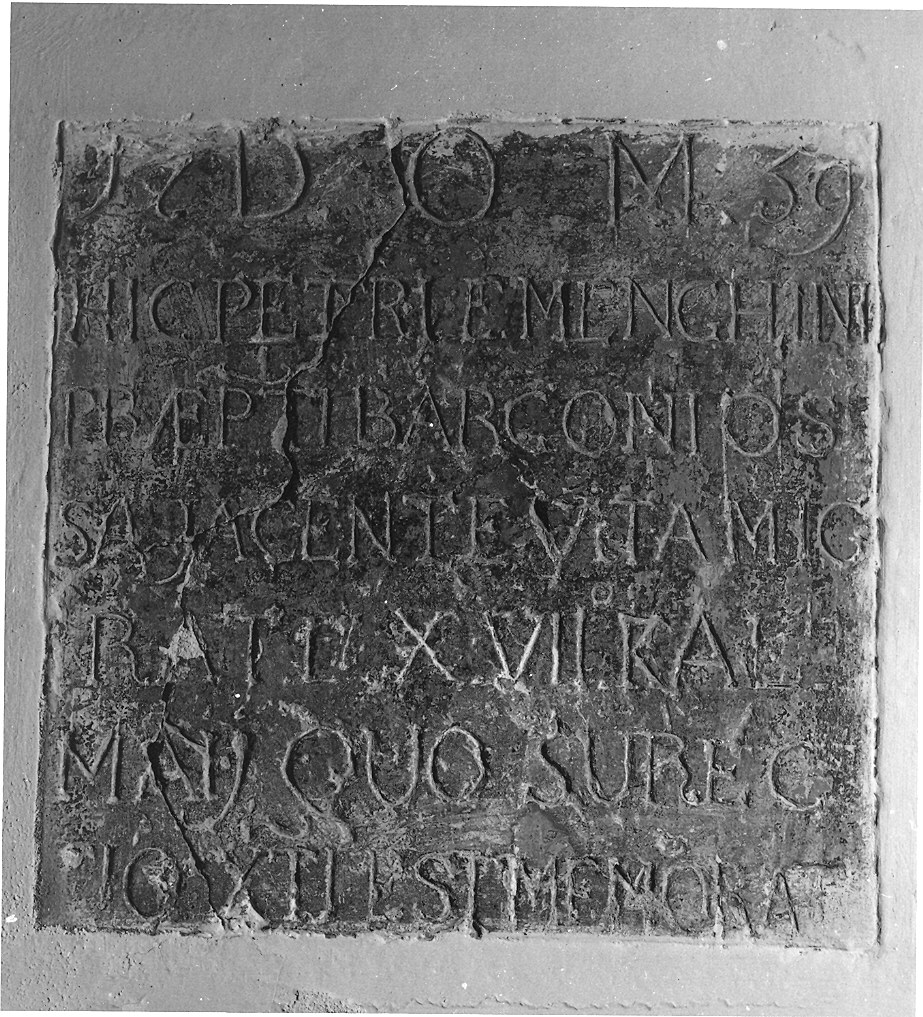 D O M 59
HIC PETRI EMENGHINI
PBÆPTI BARCONI OS
SA JACENTE VITAMIG
RATI XVII KAL
MAIJ QUO SUREC
XTI EST MEMORA